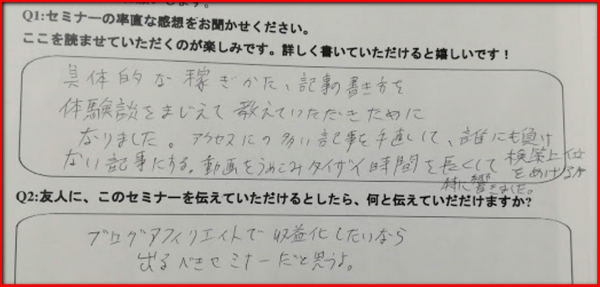 Q1:セミナーの率直な感想をお聞かせください。
ここを読ませていただくのが楽しみです。詳しく書いていただけると嬉しいです！
具体的な稼ぎかた、記事の書き方を
体験談をまじえて教えていただきために
なりました。アクセスの多い記事を手直しして、誰にも負け
ない記事にする。動画をうめこみタイザイ時間を長くして検索上位
をめざす
特に響きました。
Q2:友人に、このセミナーを伝えていただけるとしたら、何と伝えていただけますか?
ブログアフィリエイトで収益化したいなら
出るべきセミナーだと思うよ。